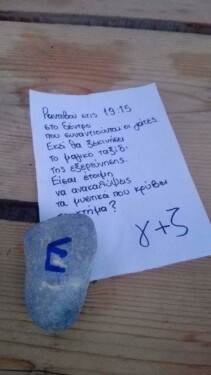 Ραντεβού στις 19:15
στο δέντρο
που συναντιούνται οι γάτες.
Εκεί θα ξεκινήσει
το μαγικό ταξίδι
της εξερεύνησης.
Είσαι έτοιμη
να ανακαλύψεις
τα μυστικά που κρύβει
κτήμα?
γ+ζ
Ε